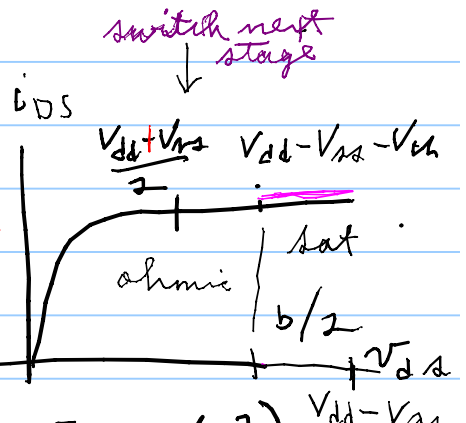 switch next
stage
i_DS
(V_dd + V_ss)/2
V_dd - V_ss - V_th
sat
ohmic
b/2
V_ds
V_dd - V_ss